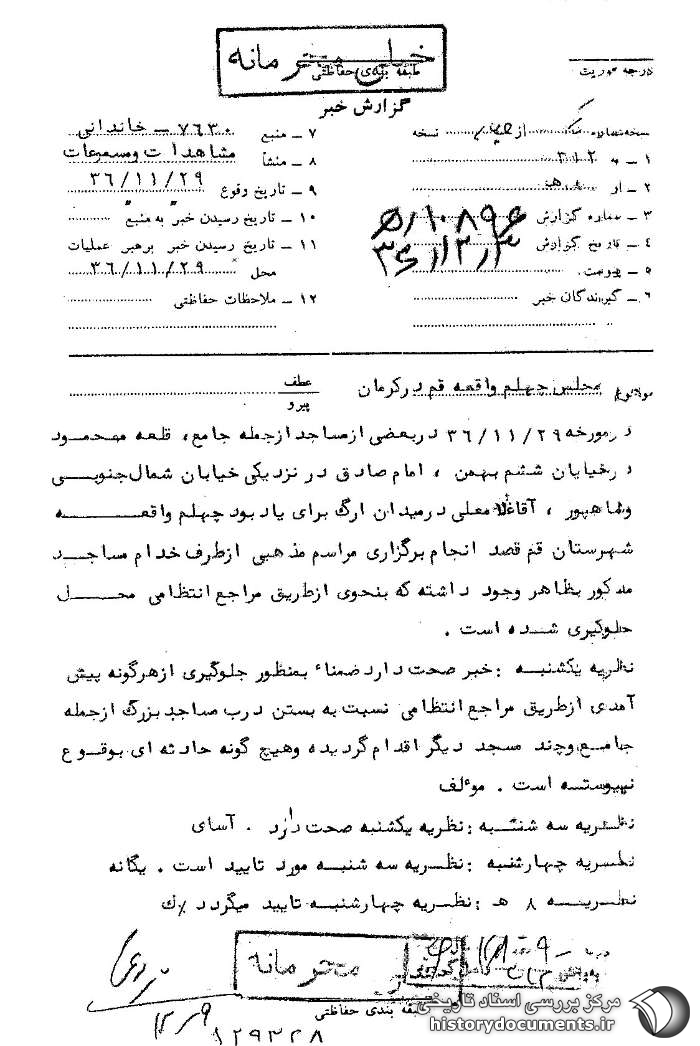 خیلی محرمانه
طبقه بندی حفاظتی
درجه فوریت
گزارش خبر
نسخه شماره از نسخه
۱ ـ به ۳۱۲
۲ ـ از ۸ هـ
۳ ـ شماره گزارش ۱۰۸۹۶ / ۸هـ
۴ ـ تاریخ گزارش ۳۶/۱۲/۳
۵ ـ پیوست
۶ ـ گیرندگان خبر
۷ ـ منبع ۷۶۳۰ ـ خاندانی
۸ ـ منشأ مشاهدات ومسموعات
۹ ـ تاریخ وقوع ۳۶/۱۱/۲۹
۱۰ ـ تاریخ رسیدن خبر به منبع
۱۱ ـ تاریخ رسیدن خبر برهبر عملیات
محل ۳۶/۱۱/۲۹
۱۲ ـ ملاحظات حفاظتی
موضوع مجلس چهلم واقعه قم در کرمان
عطف
پیرو
درمورخه ۳۶/۱۱/۲۹ دربعضی ازمساجد ازجمله جامع ، قلعه محمود
درخیابان ششم بهمن ، امام صادق در نزدیکی خیابان شمال جنوبی
وشاهپور ، آقاغلامعلی درمیدان ارگ برای یاد بود چهلم واقعه
شهرستان قم قصد انجام برگزاری مراسم مذهبی ازطرف خدام مساجد
مذکور بظاهر وجود داشته که بنحوی ازطریق مراجع انتظامی محل
جلوگیری شده است .
نظریه یکشنبه : خبر صحت دارد ضمناً بمنظور جلوگیری ازهرگونه پیش
آمدی ازطریق مراجع انتظامی نسبت به بستن درب مساجد بزرگ ازجمله
جامع وچند مسجد دیگر اقدام گردیده وهیچ گونه حادثه ای بوقوع
نپیوسته است . مؤلف
نظریه سه شنبه : نظریه یکشنبه صحت دارد . آسای
نظریه چهارشنبه : نظریه سه شنبه مورد تایید است . یگانه
نظریه ۸ هـ : نظریه چهارشنبه تایید میگردد
محرمانه
طبقه بندی حفاظتی
۱۲ـ۹
۱۲۹۳۲۸
مرکز بررسی اسناد تاریخی
historydocuments.ir